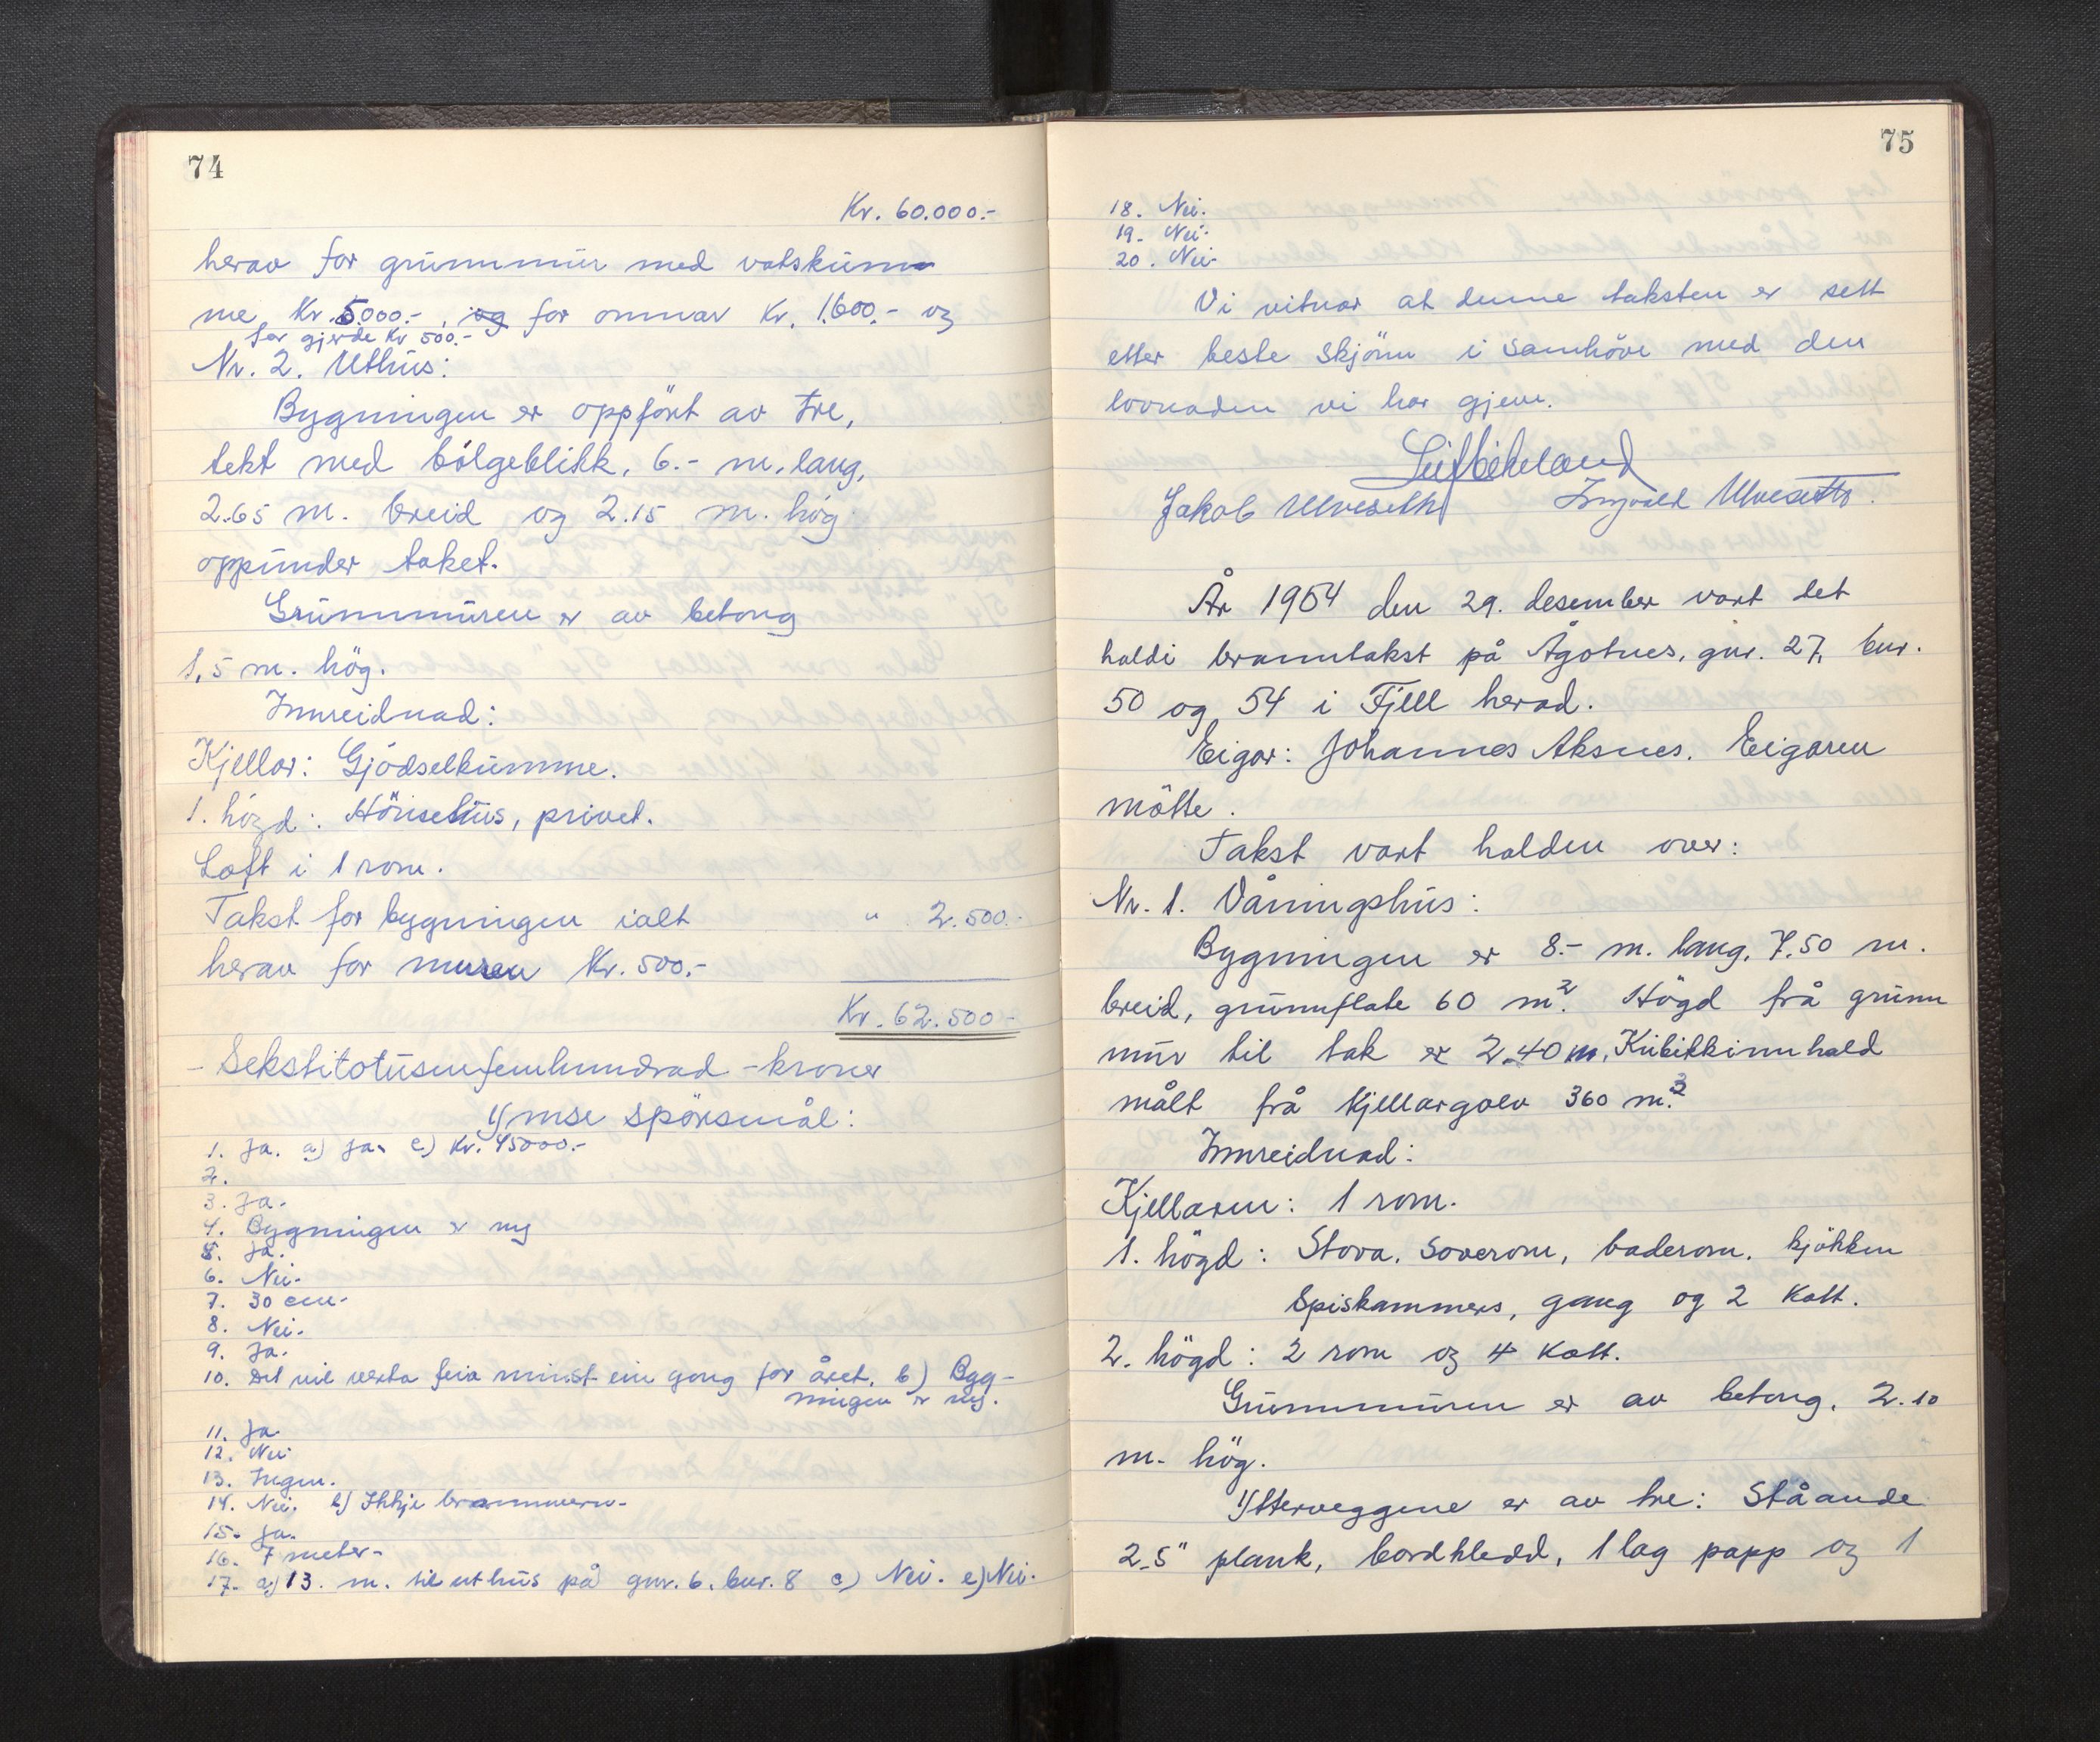 74
Kr. 60.000.-
herav for grunnmur med vatskum
me Kr. 5.000.-, og for omnar Kr. 1.600.- og
for gjerde Kr 500.-
Nr. 2. Uthus:
Bygningen er oppført av tre,
tekt med bølgeblikk, 6.- m. lang,
2.65 m. breid og 2.15 m. høg
oppunder taket.
Grunnmuren er av betong
1,5 m. høg.
Innreidnad:
Kjellar: Gjødselkumme.
1. høgd: Hønsehus, privet.
Loft i 1 rom.
Takst for bygningen ialt " 2.500.-
herav for muren Kr. 500.-
Kr. 62.500.-
- Sekstitotusenfemhundrad - kroner
Ymse spørsmål:
1. Ja. a) Ja. c) Kr. 45000.-
2.
3. Ja.
4. Bygningen er ny
5. Ja.
6. Nei.
7. 30 cm.
8. Nei.
9. Ja.
10. Det vil verta feia minst ein gong for året. b) Byg-
ningen er ny.
11. Ja.
12. Nei
13. Ingen.
14. Nei. b) Ikkje brannvern.
15. Ja.
16. 7 meter.
17. a) 13. m. til uthus på gnr. 6. bnr. 8 c) Nei. e) Nei.
75
18. Nei.
19. Nei.
20. Nei.
Vi vitnar at denne taksten er sett
etter beste skjønn i samhøve med den
lovnaden vi har gjeve.
Leif Bikeland
Jakob Ulveseth Ingvald Ulvesetth.
År 1954 den 29. desember vart det
haldi branntakst på Ågotnes, gnr. 27, bnr.
50 og 54 i Fjell herad.
Eigar: Johannes Aksnes. Eigaren
møtte.
Takst vart halden over:
Nr. 1. Våningshus:
Bygningen er 8.- m. lang, 7.50 m.
breid, grunnflate 60 m². Høgd frå grunn
mur til tak er 2.40 m. Kubikkinnhald
målt frå kjellargolv 360 m.³
Innreidnad:
Kjellaren: 1 rom.
1. høgd: Stova, soverom, baderom, kjøkken
Spiskammers, gang og 2 kott.
2. høgd: 2 rom og 4 kott.
Grunnmuren er av betong, 2.10
m. høg.
Ytterveggene er av tre: Ståande
2.5" plank, bordkledd, 1 lag papp og 1